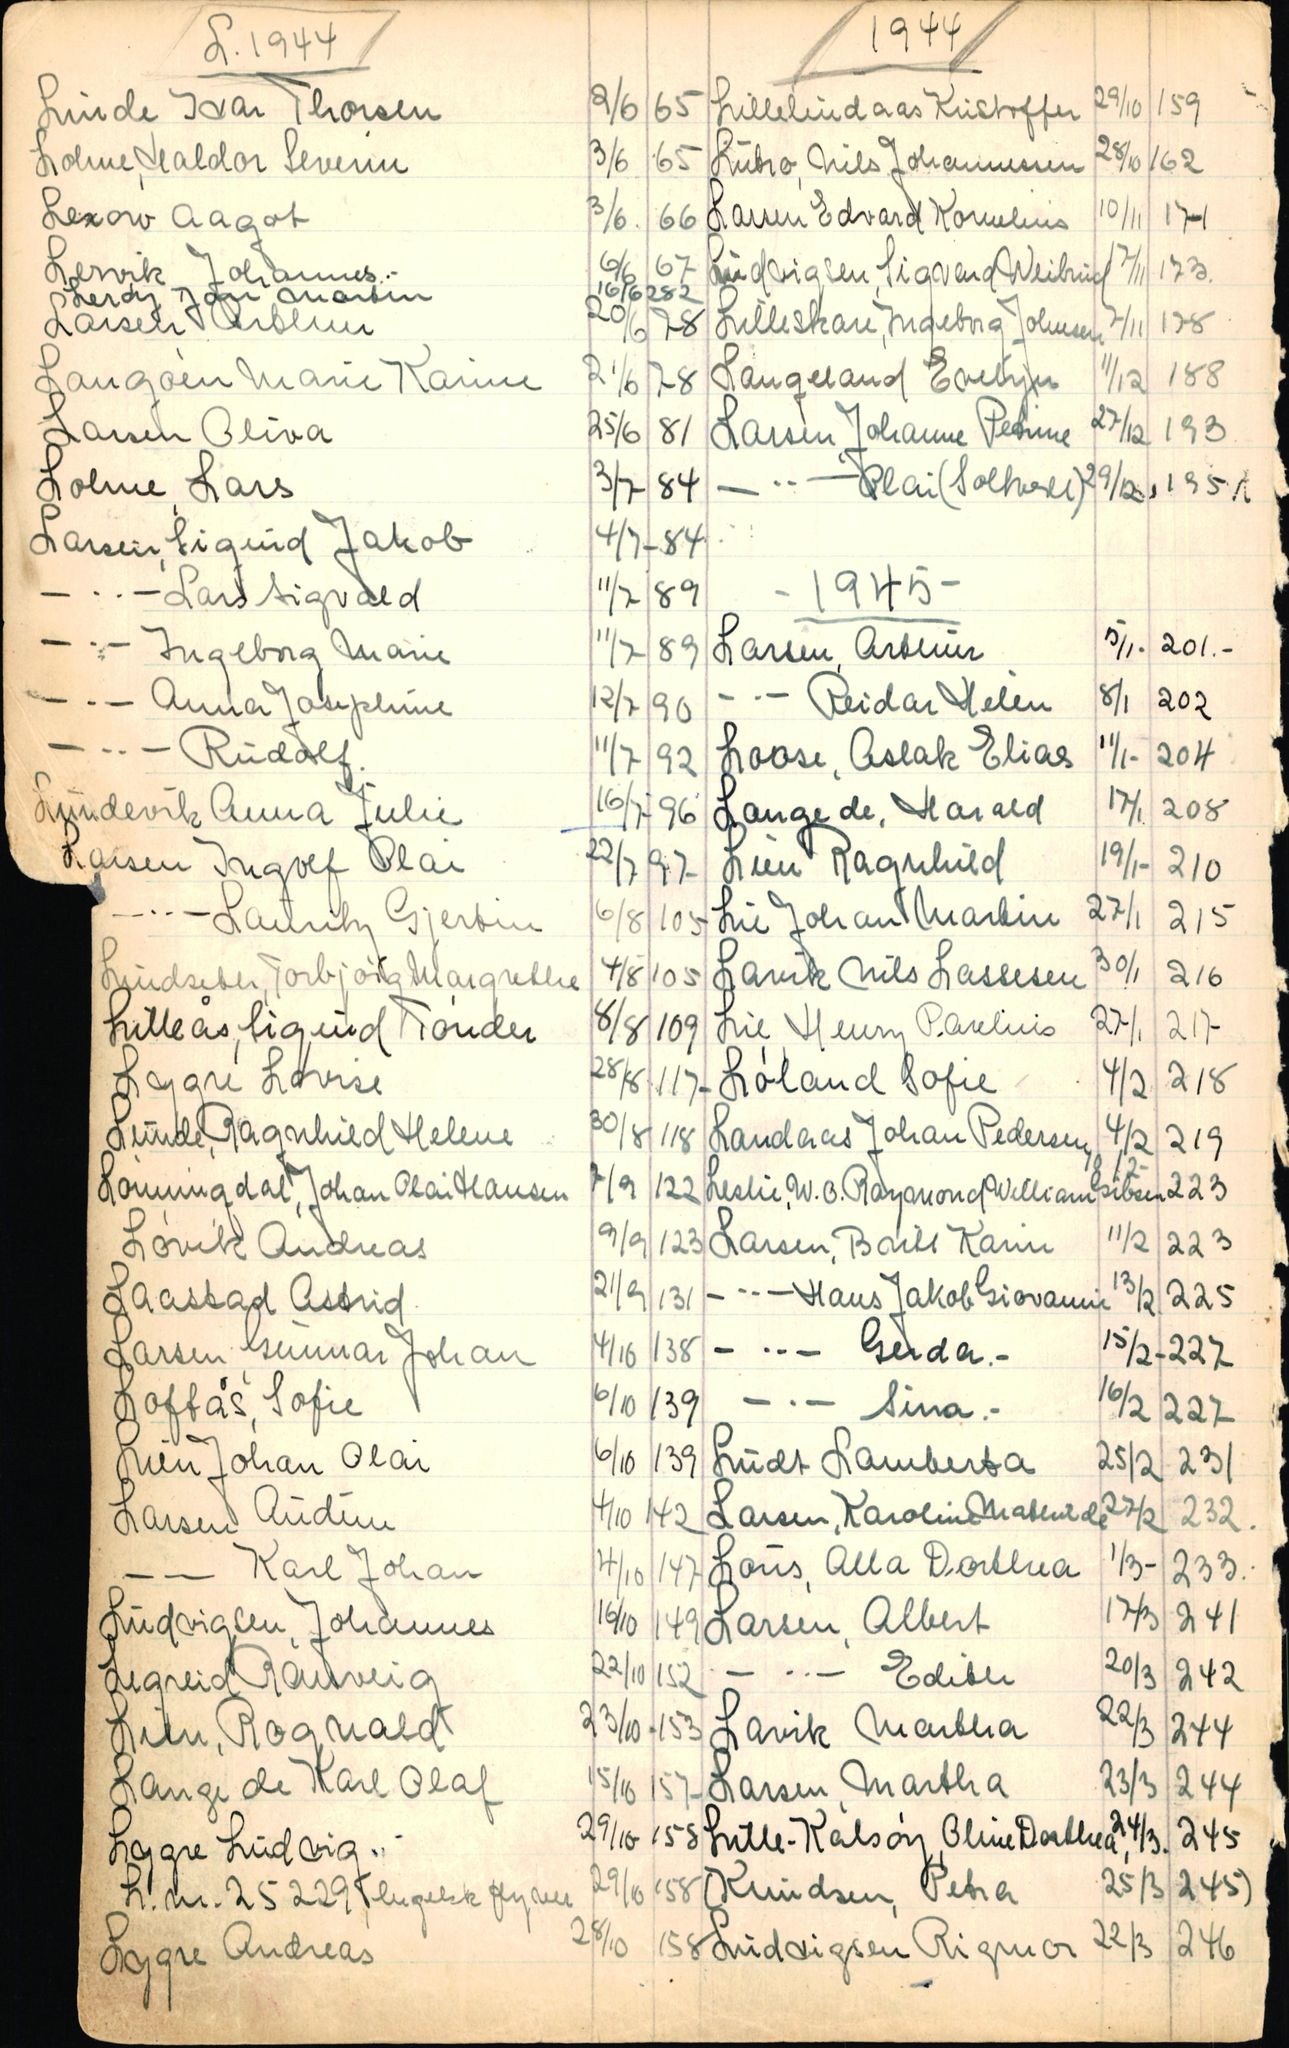 L. 1944
Linde Ivar Thorsen 2/6 65
Lohne, Haldor Severin 3/6 65
Lexow Aagot 3/6. 66
Lervik Johannes.- 6/6 67
Lerøy Jan Martin 16/6 282
Larsen Arthur 20/6 78
Langøen Marie Karine 21/6 78
Larsen Oliva 25/6 81
Lohne, Lars 3/7 84
Larsen, Sigurd Jakob 4/7- 84
— .. — Lars Sigvald 11/7 89
— .. — Ingeborg Marie 11/7 89
— .. — Anna Josephine 12/7 90
— .. — Rudolf. 11/7 92
Lundevik Anna Julie 16/7 96
Larsen Ingolf Olai 22/7 97-
— .. — Lauritz Gjertin 6/8 105
Lindseter, Torbjørg Margrethe 4/8 105
Lilleås, Sigurd Tønder 8/8 109
Lygre Lovise 28/8 117-
Lunde, Ragnhild Helene 30/8 118
Lønningdal, Johan Olai Hansen 7/9 122
Løvik Andreas 9/9 123
Laastad Astrid 21/9 131
Larsen Gunnar Johan 4/10 138
Loftås, Sofie 6/10 139
Lien Johan Olai 6/10 139
Larsen Audun 4/10 142
— — Karl Johan 4/10 147
Ludvigsen, Johannes 16/10 149
Legreid Rannveig 22/10 152
Lien, Rognald 23/10 153
Lange de Karl Olaf 15/10 157-
Lygre Ludvig .- 29/10 158
L. nr. 25229, engelsk flyver 29/10 158
Lygre Andreas 28/10 158
1944
Lillelindaas Kristoffer 29/10 159
Lütro, Nils Johannessen 28/10 162
Larsen Edvard Kornelius 10/11 171
Ludvigsen, Sigvard 17/11 173.
Lilleskare, Ingeborg Johnsen 7/11 178
Langeland Evelyn 11/12 188
Larsen, Johanne Petrine 27/12 193
— .. — Olai 29/12. 195
- 1945 -
Larsen, Arthur 5/1. 201.-
— .. — Reidar Helén 8/1 202
Loose, Aslak Elias 11/1- 204
Lange de, Harald 17/1 208
Lien Ragnhild 19/1- 210
Lie Johan Martin 27/1 215
Larvik Nils Lassesen 30/1 216
Lie, Henry Paulius 27/1 217-
Løland Sofie 4/2 218
Landaas Johan Pedersen 4/2 219
Leslie, W. O. Raymond William Gibson 223
Larsen, Borill Karin 11/2 223
— .. — Hans Jakob Giovanni 13/2 225
— .. — Gerda.- 15/2- 227
— .. — Sina.- 16/2 227
Lüdt Lamberta 25/2 231
Larsen, Karoline Mathilde 27/2 232.
Loüs, Alla Dorthea 1/3- 233.
Larsen, Albert 17/3 241
— .. — Edith 20/3 242
Lavik Martha 22/3 244
Larsen, Martha 23/3 244
Lille-Kalsøy, Oline Dorthea, 24/3. 245
(Knudsen, Petra 25/3 245)
Ludvigsen Rigmor 22/3 246